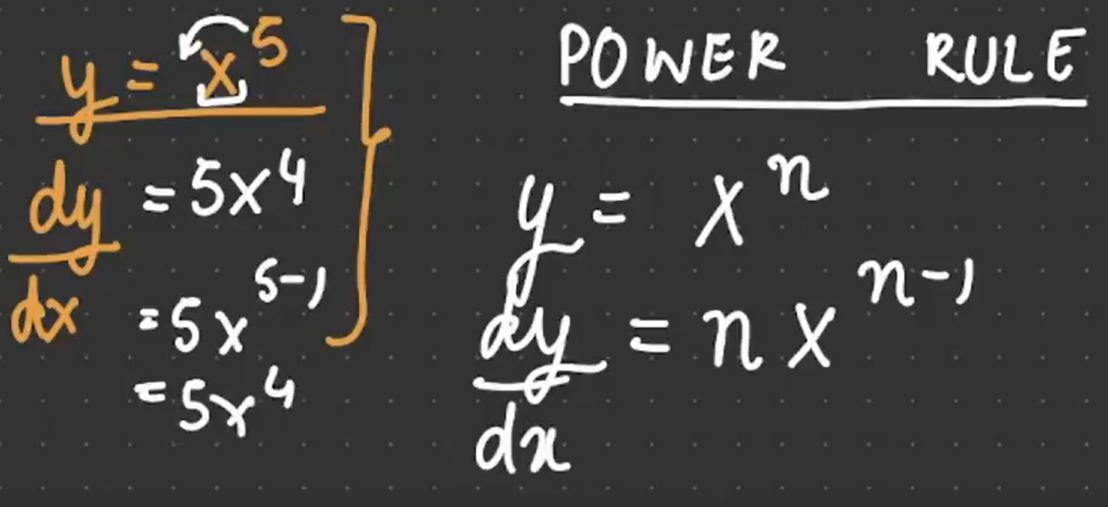 y = x^5
dy/dx = 5x^4
= 5x^(5-1)
= 5x^4
POWER RULE
y = x^n
dy/dx = n x^(n-1)